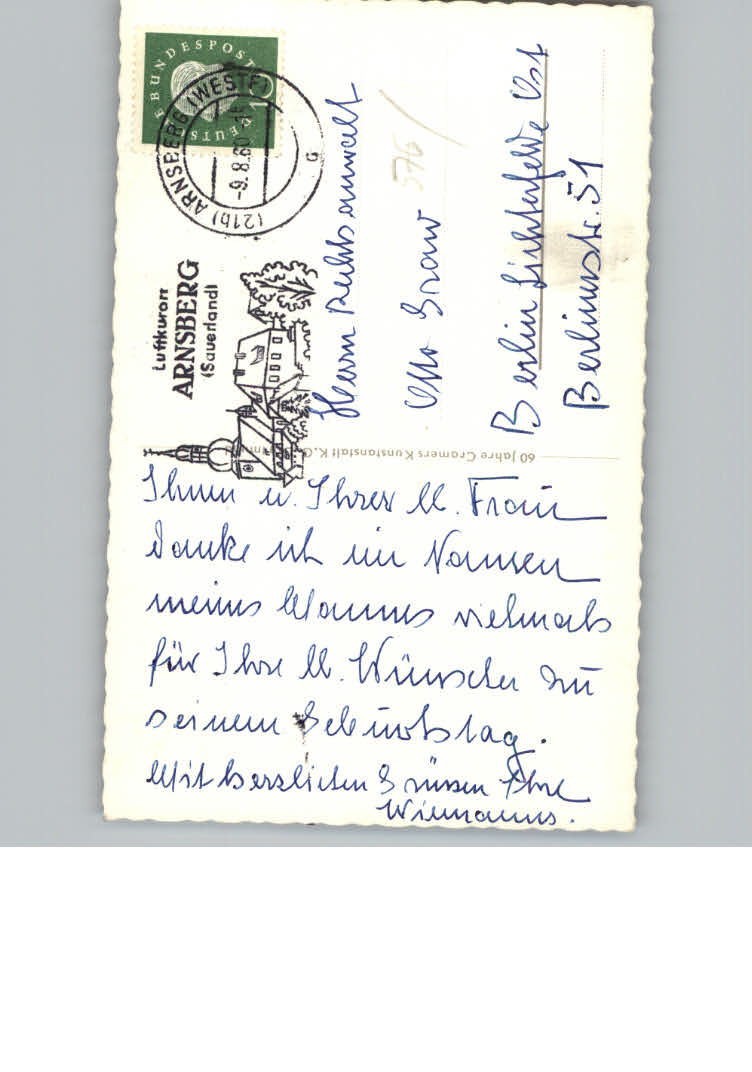 DEUTSCHE BUNDESPOST
10
(21b) ARNSBERG (WESTF)
-9.8.60
G
Luftkurort
ARNSBERG
(Sauerland)
Herrn Rechtsanwalt
Otto
Berlin Lichterfelde Ost
Berlinerstr. 51
576
60 Jahre Cramers Kunstanstalt K.G.
Ihnen u. Ihrer lb. Frau
danke ich im Namen
meines Mannes vielmals
für Ihre lb. Wünsche zu
seinem Geburtstag.
Mit herzlichen Grüssen Ihre
Wiemanns.